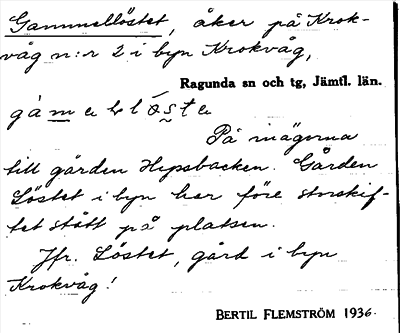 Gammellöstet, åker på Krok-
våg n:r 2 i byn Krokvåg,
Ragunda sn och tg, Jämtl. län.
På inägorna
till gården Hepsbacken. Gården
Löstet i byn har före storskif-
tet stått på platsen.
Jfr. Löstet, gård i byn
Krokvåg!
BERTIL FLEMSTRÖM 1936.